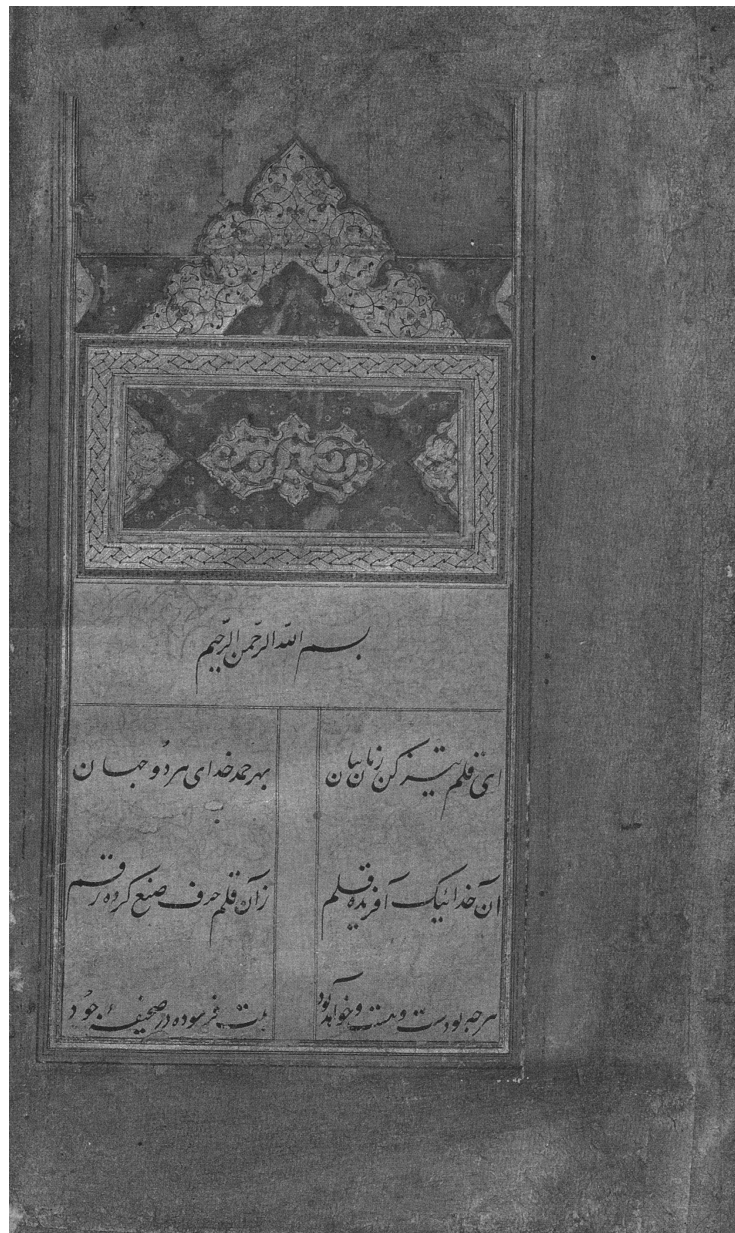 بسم الله الرّحمن الرّحیم
ای قلم تیز کن زبان بیان بهر حمد خدای هر دو جهان
آن خدائیک آفریده قلم زان قلم حرف صنع کرده رقم
هر چه بودست و هست و خواهد بود فرسوده در صحیفه وجود